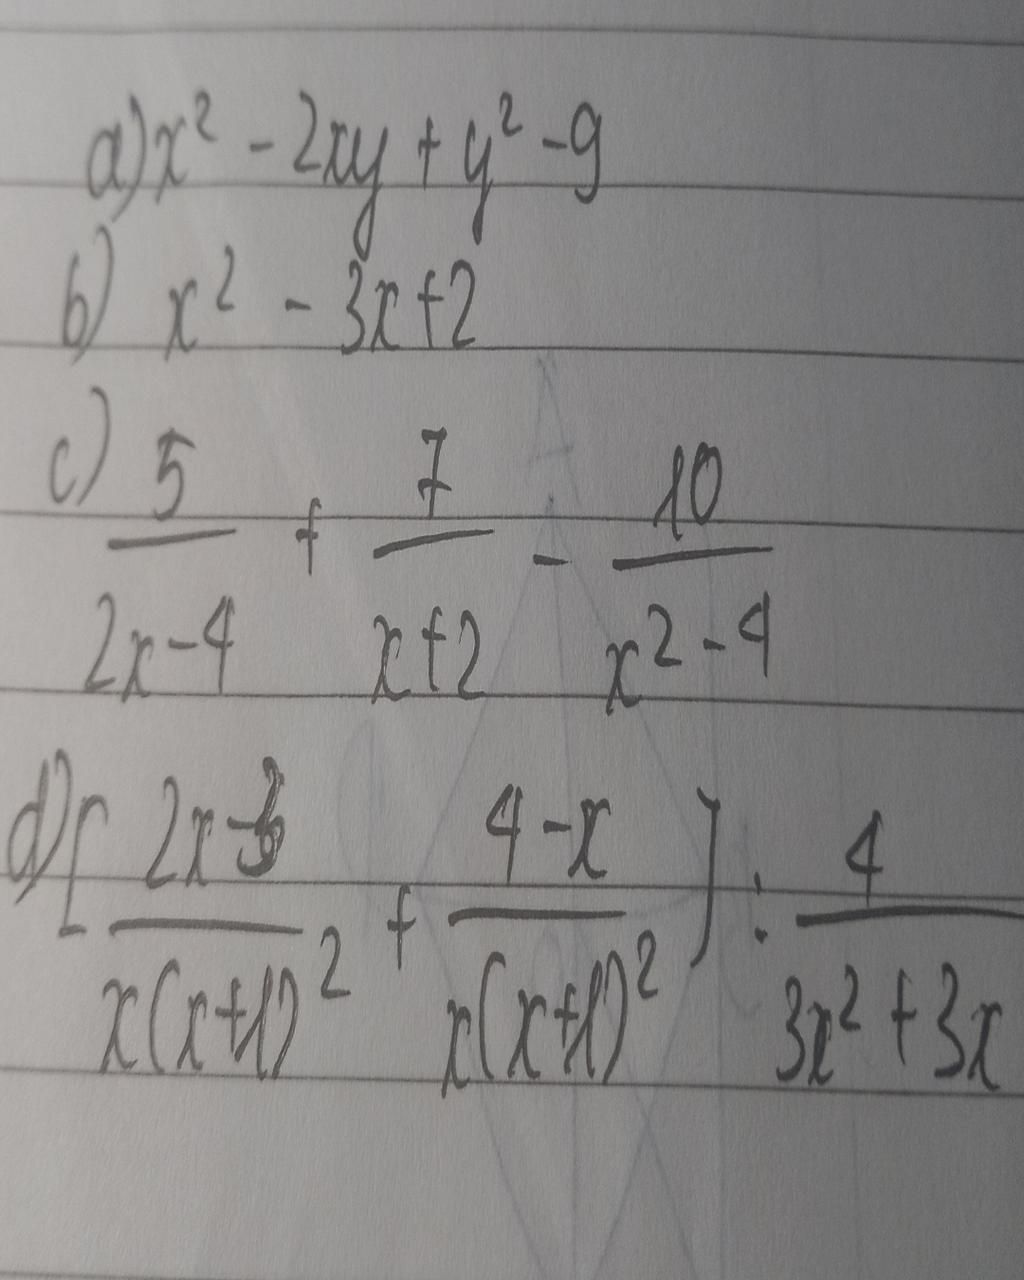 a) x² - 2xy + y² - 9
b) x² - 3x + 2
c) 5/(2x-4) + 7/(x+2) - 10/(x²-4)
d) [(2x-3)/(x(x+1)²) + (4-x)/(x(x+1)²)] : 4/(3x²+3x)